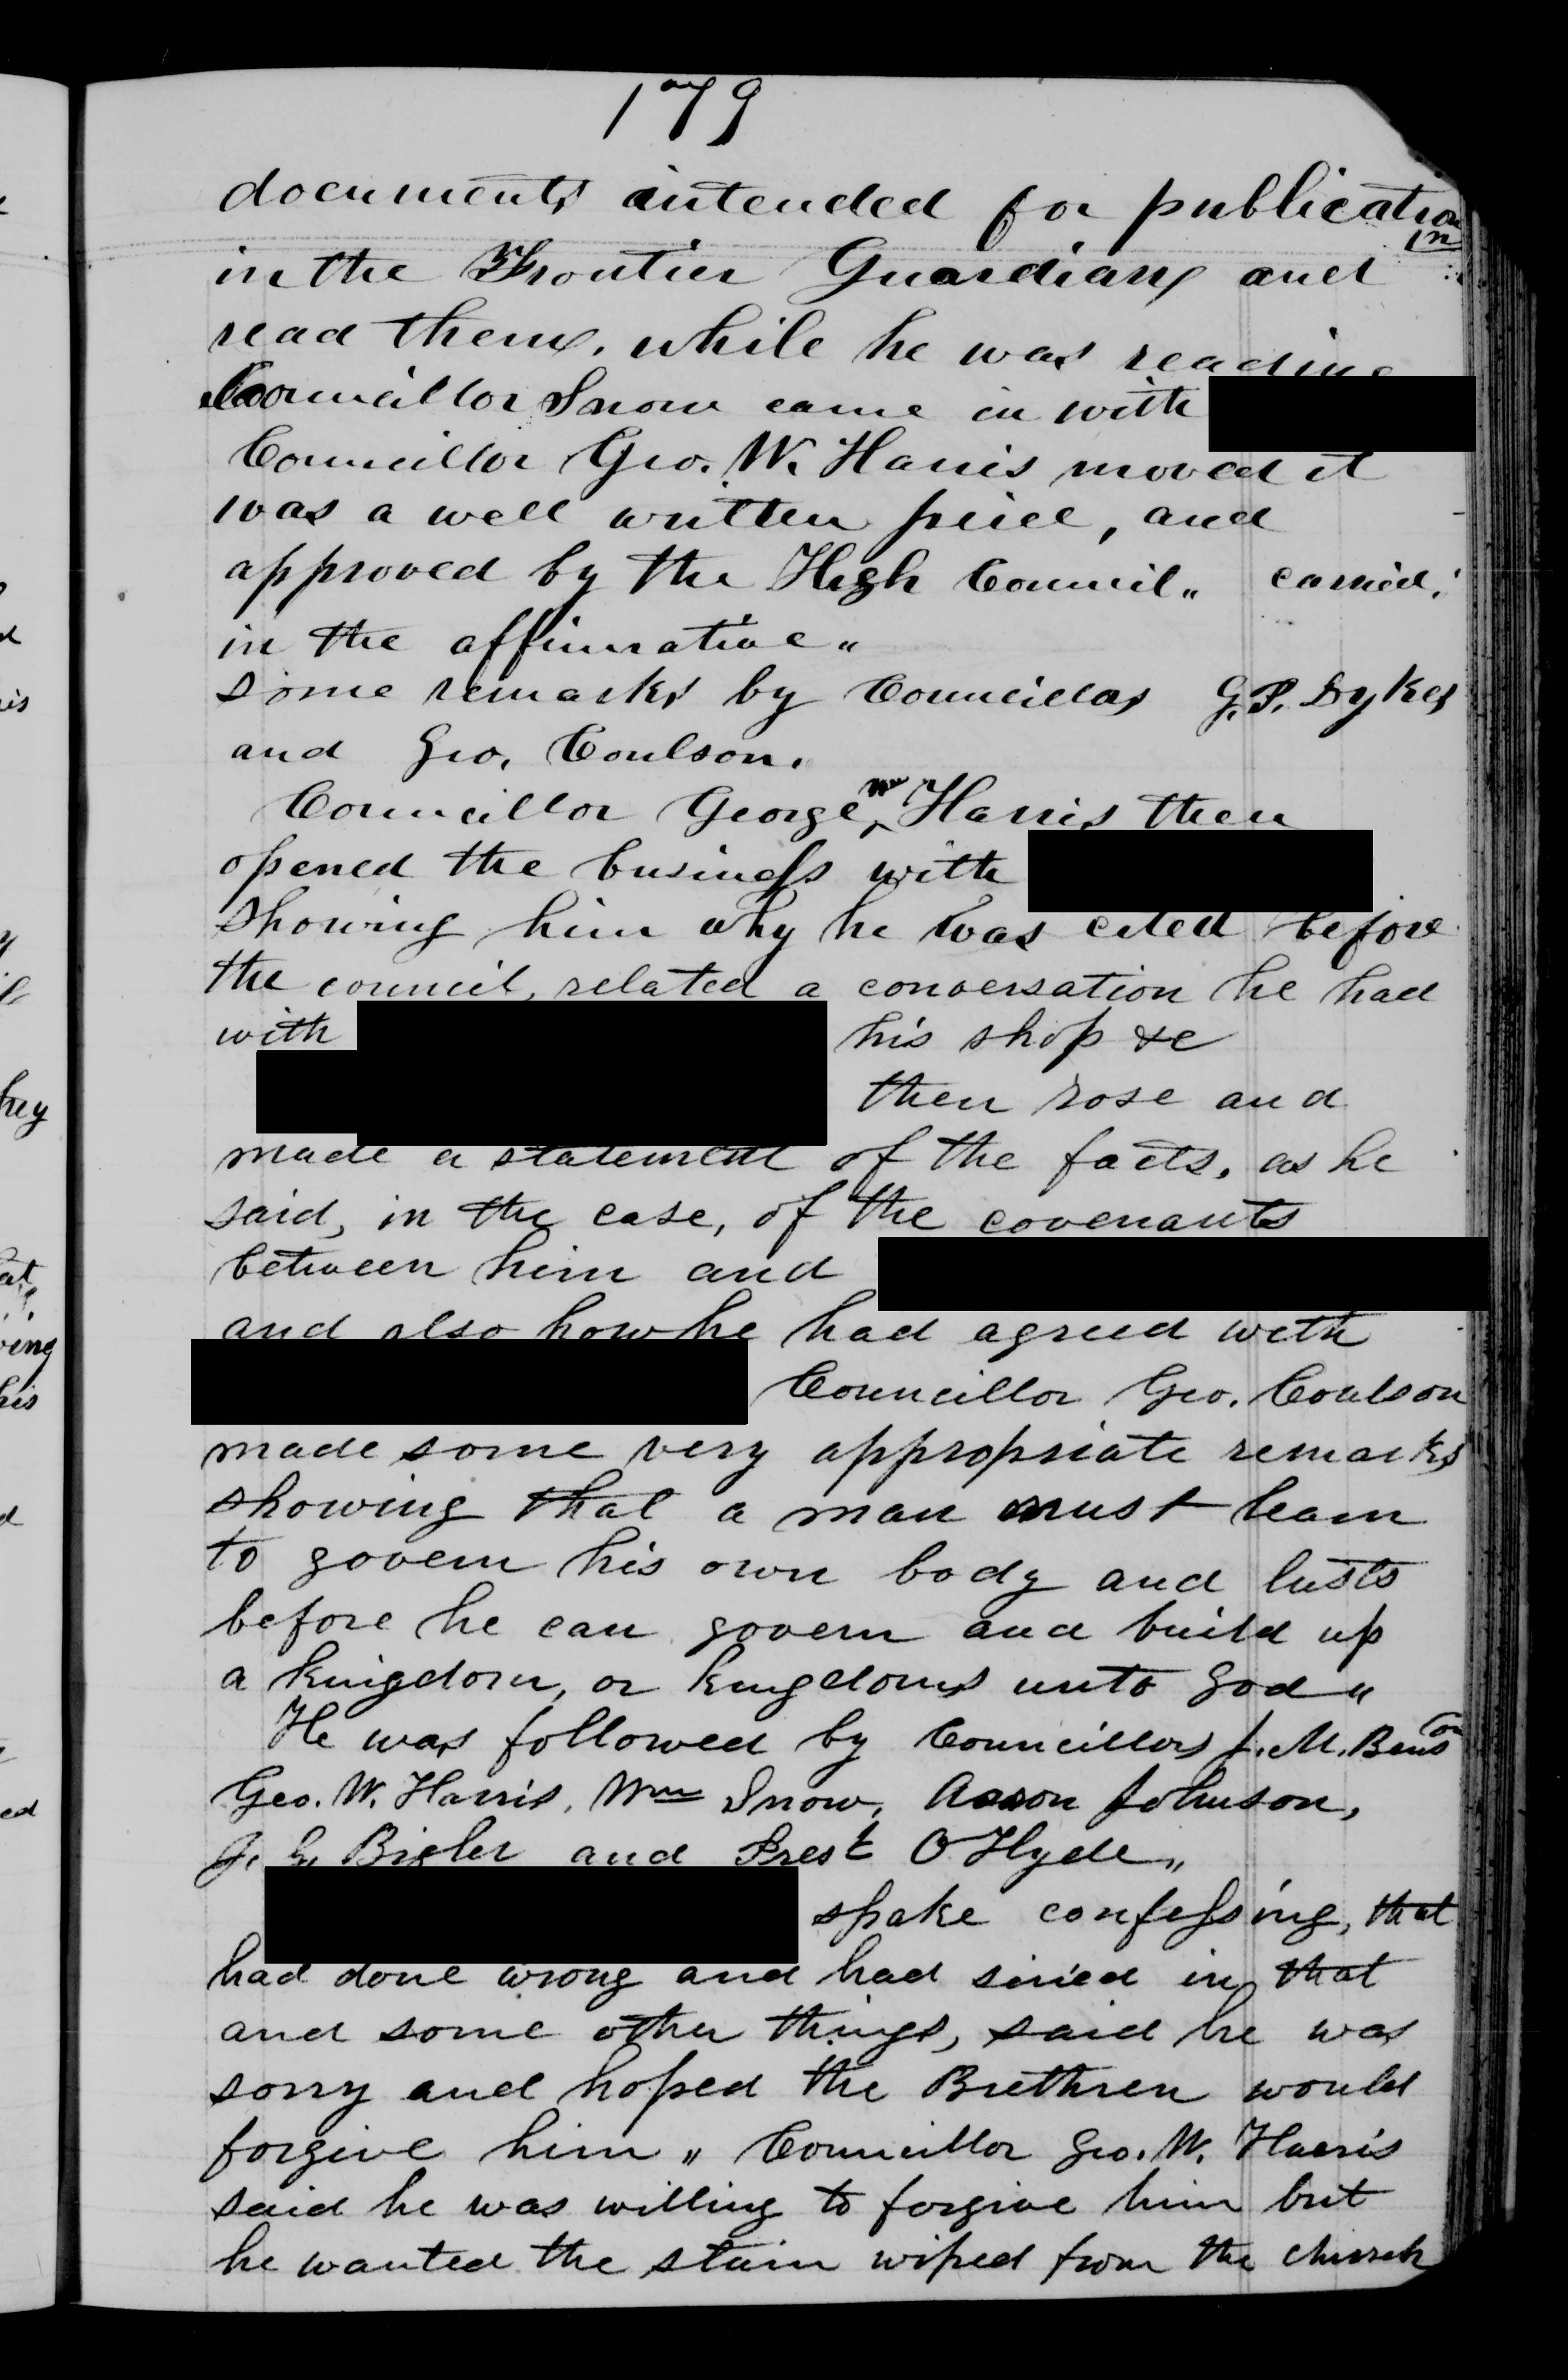 179
documents intended for publication
in the Frontier Guardian, and
read them, while he was reading
Councillor Snow came in with
Councillor Geo. W. Harris moved it
was a well written peice, and
approved by the High Council„ carried,
in the affirmative„
some remarks by Councillors G. P. Dykes
and Geo. Coulson.
Councillor George W Harris then
opened the business with
showing him why he was cited before
the council, related a conversation he had
with his shop &c
then rose and
made a statement of the facts, as he
said, in the case, of the covenants
between him and
and also how he had agreed with
Councillor Geo. Coulson
made some very appropriate remarks
showing that a man must learn
to govern his own body and lusts
before he can govern and build up
a kingdom, or kingdoms unto God„
He was followed by Councillors J. M. Benson
Geo. W. Harris, Wm Snow, Aaron Johnson,
J. G. Bigler and Prest O Hyde„
spake confessing, that
had done wrong and had sined in that
and some other things, said he was
sorry and hoped the Brethren would
forgive him„ Councillor Geo. W. Harris
said he was willing to forgive him but
he wanted the stain wiped from the church